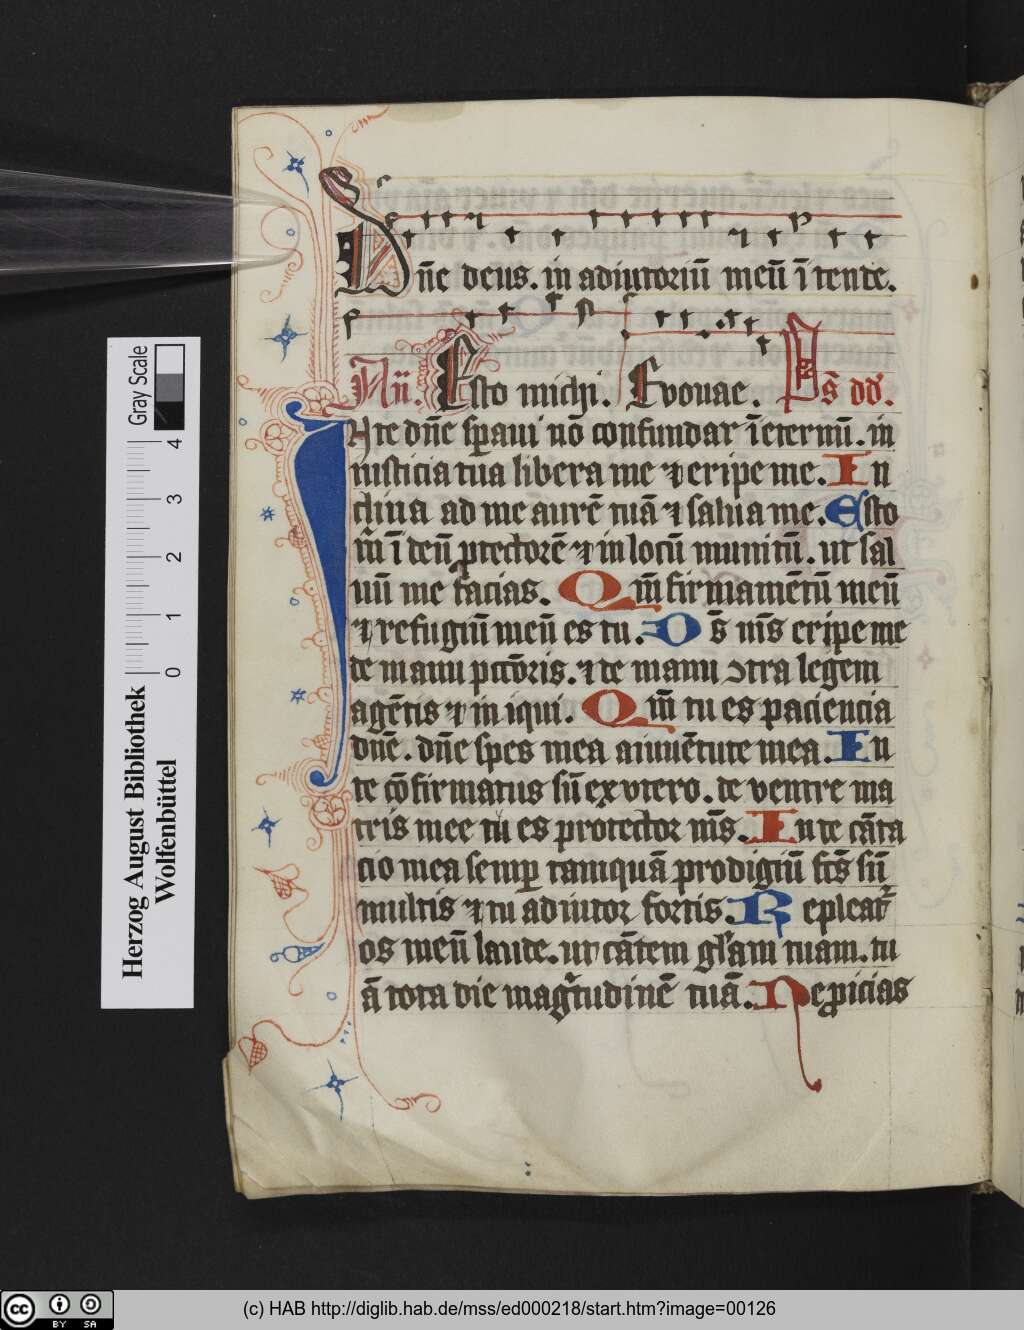 Dn̄e deus. in adiutoriū meū ītente.
Añ. Esto michi. Euouae. Ps̄ dd̄.
In te dn̄e speraui nō confundar ī eternū. in
iusticia tua libera me ⁊ eripe me. In
clina ad me aurē tuā ⁊ salua me. Esto
m̄ ī deū ꝓtectorē ⁊ in locū munitū. ut sal
uū me facias. Qm̄ firmamētū meū
⁊ refugiū meū es tu. Ds̄ ms̄ eripe me
de manu pctōris. ⁊ de manu ↄtra legem
agētis ⁊ in iqui. Qm̄ tu es paciencia
dn̄e. dn̄e spes mea a iuuētute mea. In
te cōfirmatus sū ex vtero. de ventre ma
tris mee tu es protector ms̄. In te cāta
cio mea semꝑ tamquā prodigiū fc̄s sū
multis ⁊ tu adiutor fortis. Repleat᷑
os meū laude. ut cātem gl̄am tuam. tu
ā tota die magr̄tudinē tuā. Ne ꝓicias
Herzog August Bibliothek
Wolfenbüttel
Gray Scale
0 1 2 3 4
cc BY SA
(c) HAB http://diglib.hab.de/mss/ed000218/start.htm?image=00126